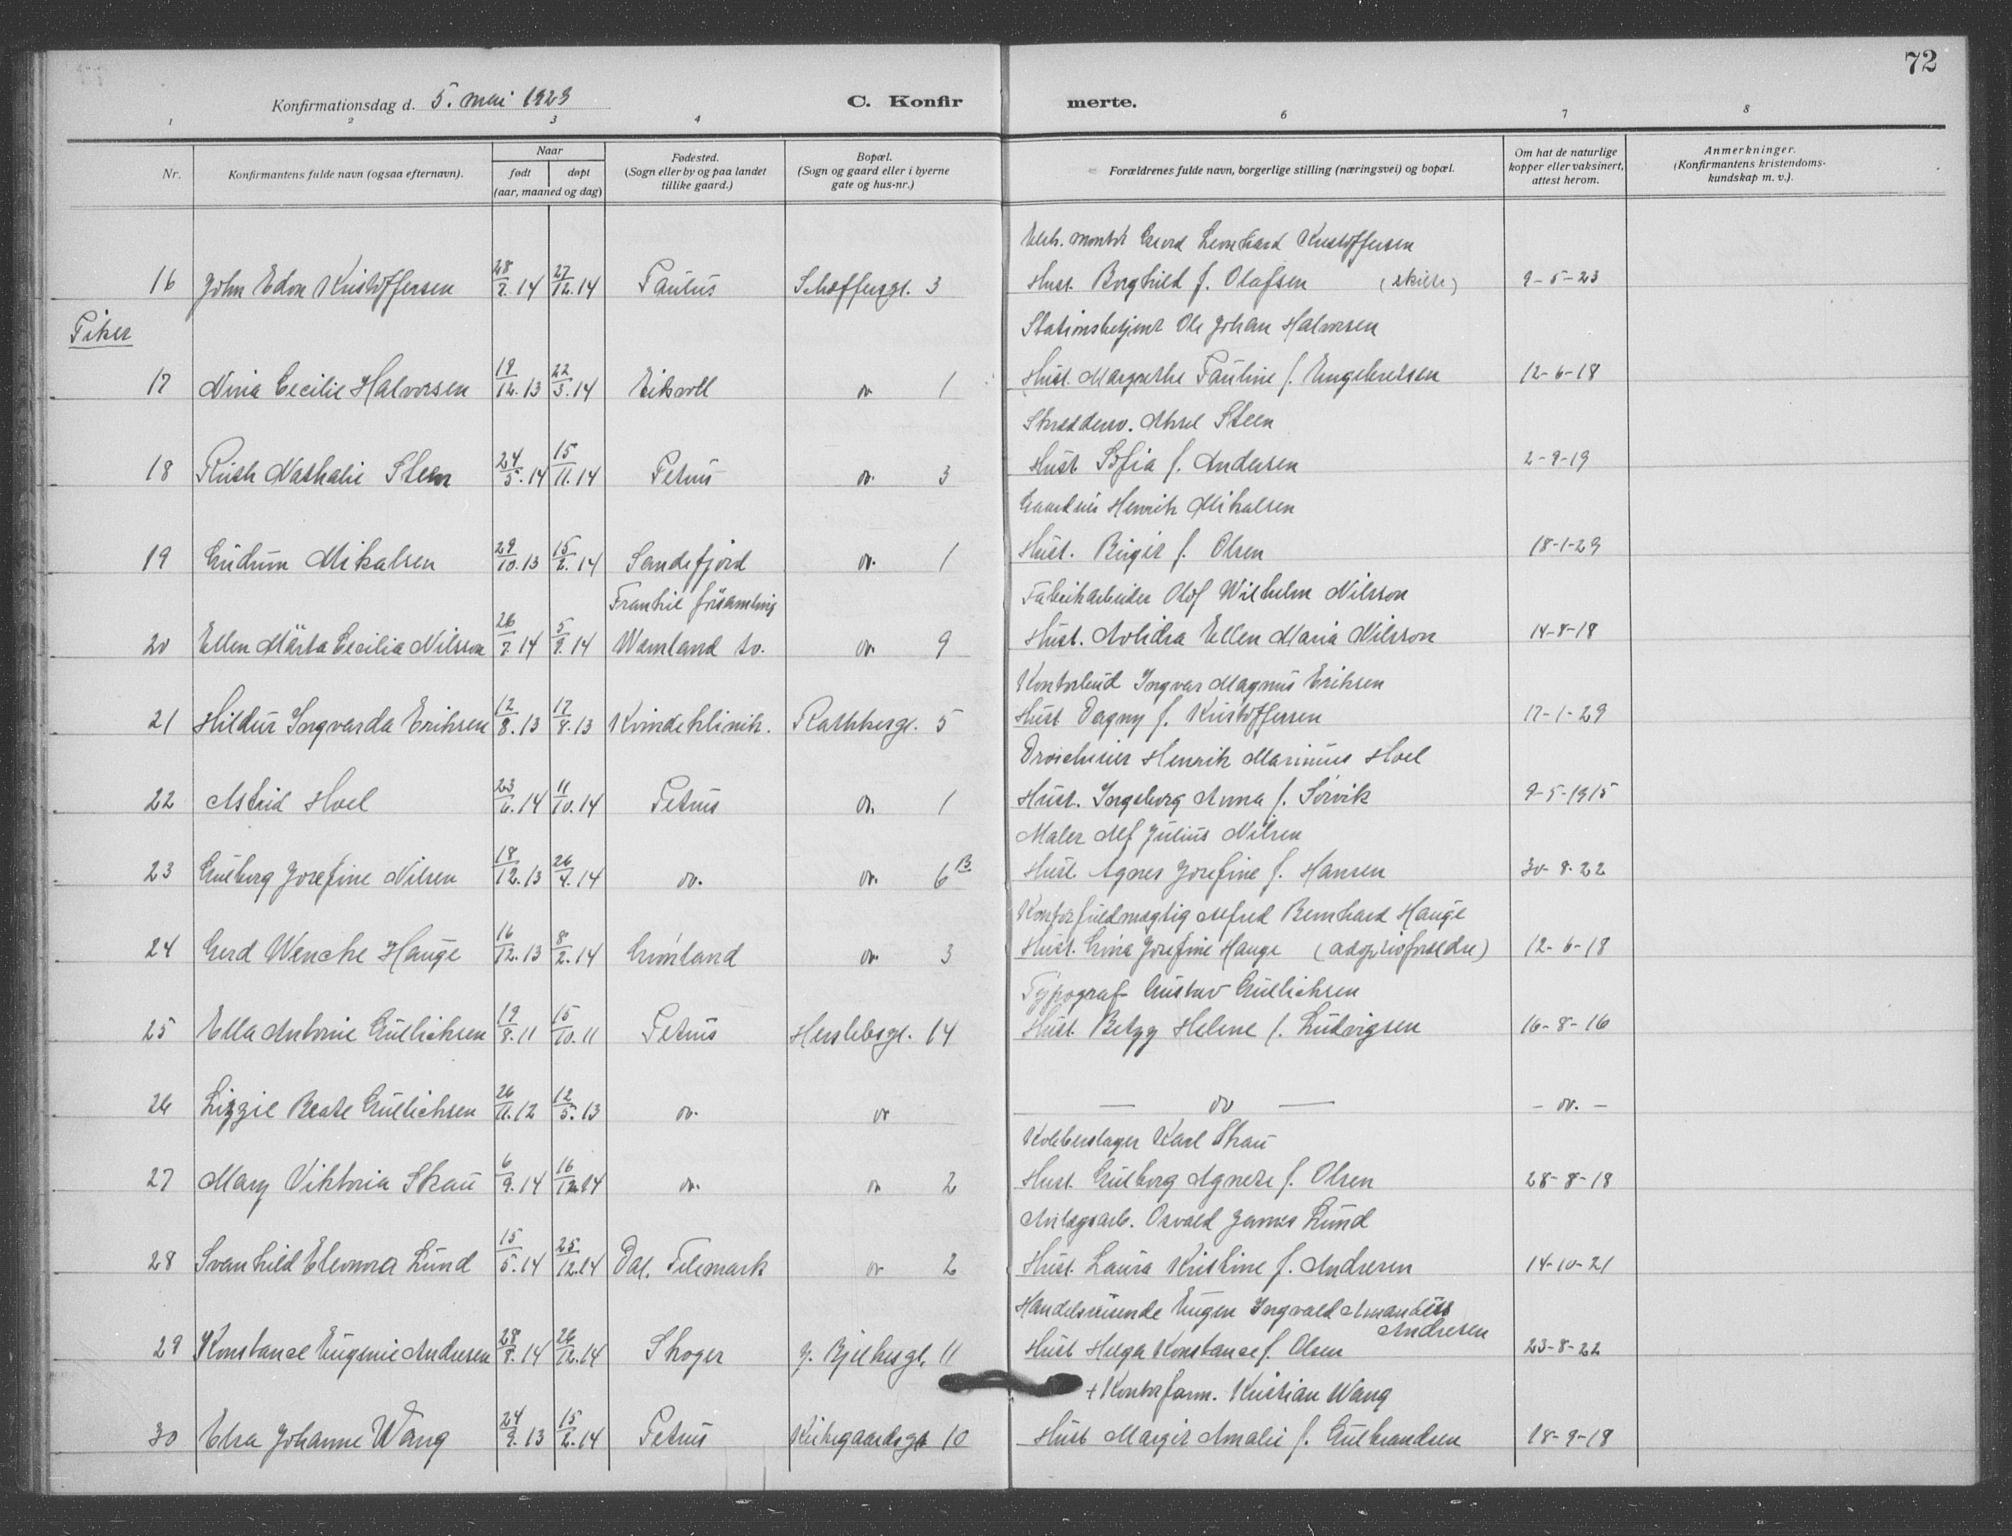 72
Konfirmationsdag d. 5. mai 1929
C. Konfirmerte.
1 2 3 4 6 7 8
Nr.
Konfirmantens fulde navn (ogsaa efternavn).
Naar
født døpt
(aar, maaned og dag)
Fødested.
(Sogn eller by og paa landet
tillike gaard.)
Bopæl.
(Sogn og gaard eller i byerne
gate og hus-nr.)
Forældrenes fulde navn, borgerlige stilling (næringsvei) og bopæl.
Om hat de naturlige
kopper eller vaksinert,
attest herom.
Anmerkninger.
(Konfirmantens kristendoms-
kundskap m. v.).
Elek. montør Leonhard Kristoffersen
16 John Edon Kristoffersen 28/7.14 27/12.14 Paulus 3 Hust. Borghild f. Olafsen (skilt) 9-5-23
Piker
Stationsbetjent Ole Johan Halvorsen
17 Nina Cecilie Halvorsen 19/12.13 22/3.14 Eidsvoll do. 1 Hust. Margrethe Pauline f. Engebretsen 12-6-18
Skræddersv. Aksel Steen
18 Ruth Nathalie Steen 24/5.14 15/11.14 Petrus do. 3 Hust. Sofia f. Andersen 2-9-19
Henrik Mikalsen
19 Gudrun Mikalsen 29/10.13 15/2.14 Sandefjord do. 1 Hust. Birgit f. Olsen 18-1-29
Församling
Fabrikarbeider Olof Wilhelm Nilsson
20 Ellen Märta Cecilia Nilsson 26/7.14 5/9.14 Wermland do. 9 Hust. Ellen Maria Nilsson 14-8-18
Kontorbud Ingvar Magnus Eriksen
21 Hildur Ingvarda Eriksen 12/8.13 17/8.13 Kvindeklinik. Rathkesgt. 5 Hust. Dagny f. Kristoffersen 17-1-29
Droscheeier Henrik Marinius Hoel
22 Astrid Hoel 23/6.14 11/10.14 Petrus do. 1 Hust. Ingeborg Anna f. Sørvik 9-5-1915
Maler Alf Julius Nilsen
23 Gulborg Josefine Nilsen 18/12.13 26/4.14 do. do. 6B Hust. Agnes Josefine f. Hansen 30-8-22
Kontorfuldmægtig Alfred Bernhard Hauge
24 Gerd Wenche Hauge 16/12.13 8/2.14 Grønland do. 3 Hust. Gina Josefine Hauge (adoptivforældre) 12-6-18
Typograf Gustav Gullichsen
25 Ella Antonie Gullichsen 19/8.11 15/10.11 Petrus Herslebsgt. 14 Hust. Betzy Helene f. Ludvigsen 16-8-16
26 Lizzie Beate Gullichsen 26/11.12 12/5.13 do. do — do — - do. -
Kobberslager Karl Skau
27 Mary Viktoria Skau 6/9.14 16/12.14 do. do 2 Hust. Gulborg Agnete f. Olsen 28-8-18
Anlægsarb. Osvald James Lund
28 Svanhild Eleonora Lund 15/5.14 25/12.14 Dal, Telemark do 2 Hust. Laura Kristine f. Andresen 14-10-21
Handelsreisende Eugen Ingvald Amandus
Andresen
29 Konstance Eugenie Andresen 28/8.14 26/12.14 Skoger J. Bjelkesgt. 11 Hust Helga Konstance f. Olsen 23-8-22
+ Kontorform. Kristian Wang
30 Elsa Johanne Wang 24/9.13 15/2.14 Petrus Kirkegaardsgt 10 Hust Margit Amalie f. Gulbrandsen 18-9-18